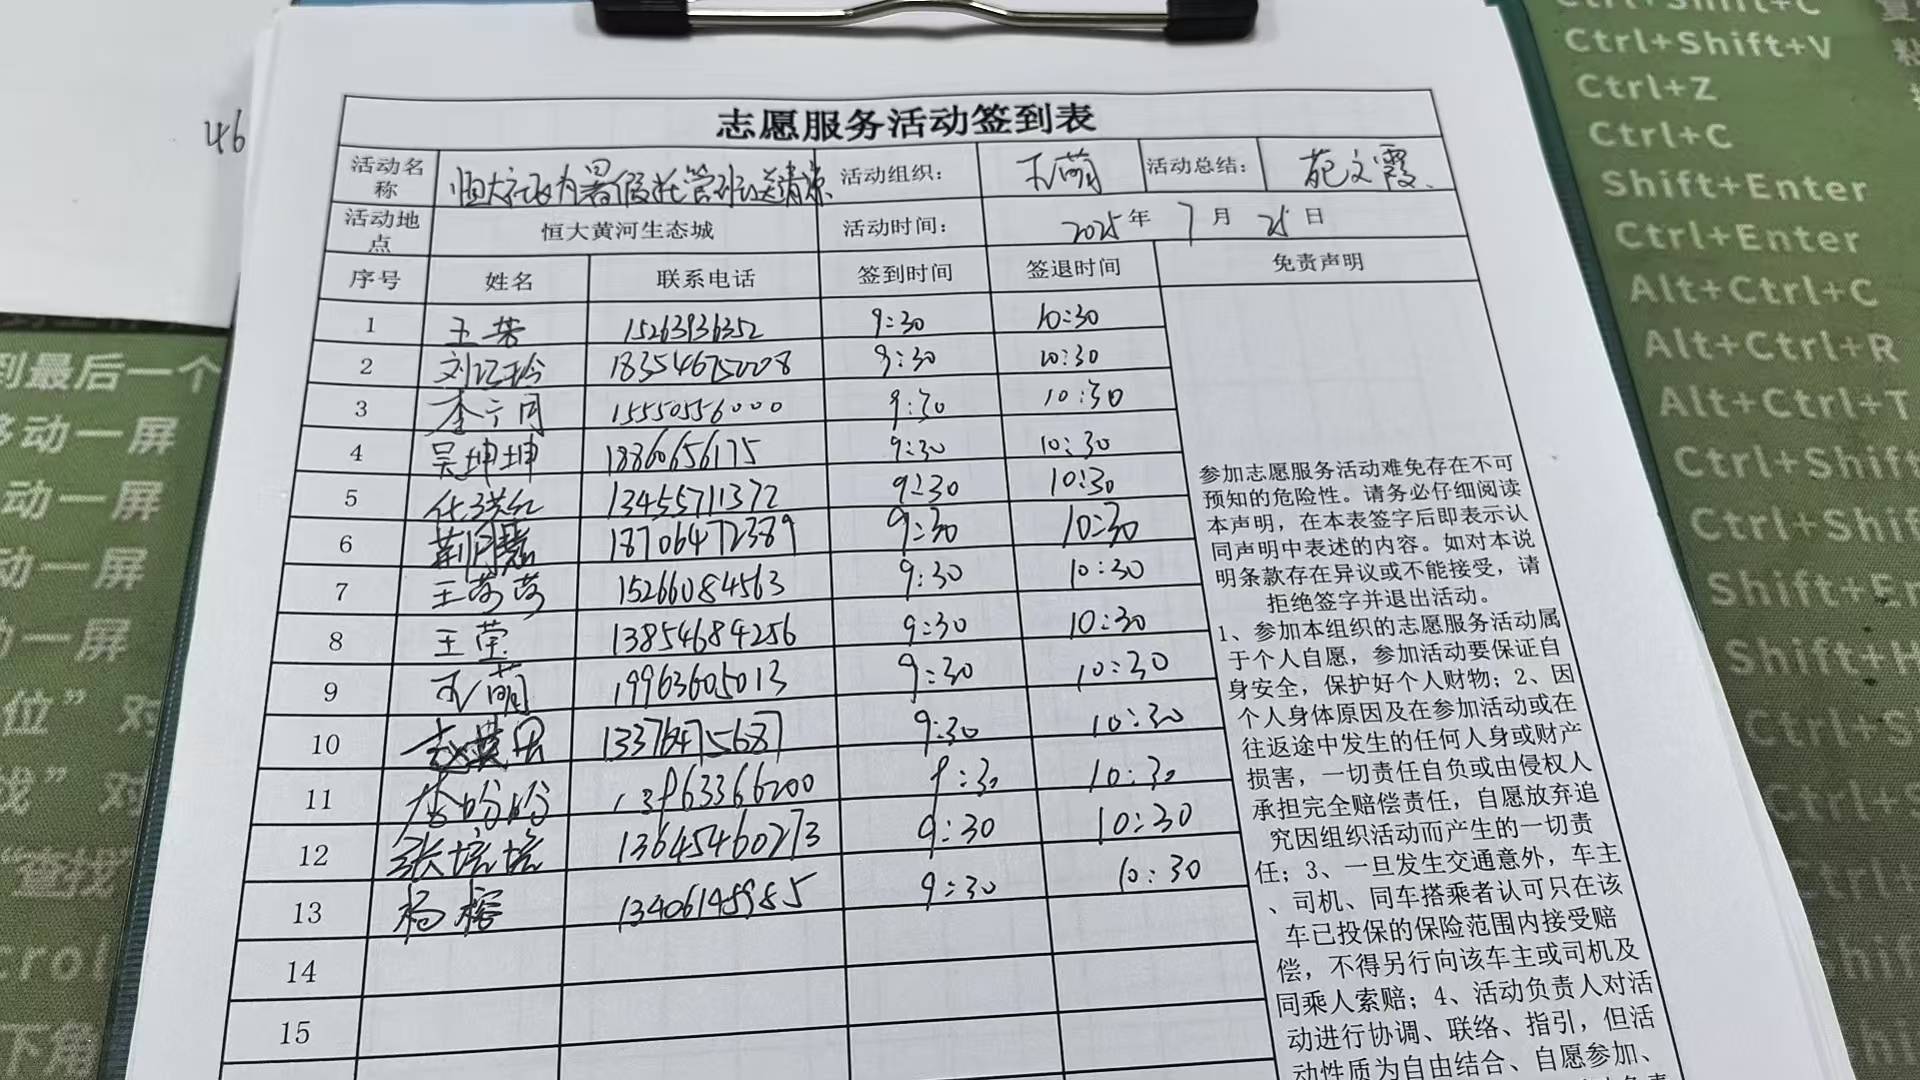 46
志愿服务活动签到表
活动名称 恒大社区为暑假托管班送清凉 活动组织： 王萌 活动总结： 范文霞
活动地点 恒大黄河生态城 活动时间： 2025年 7月 25日
序号 姓名 联系电话 签到时间 签退时间 免责声明
1 王芳 15263936352 9:30 10:30
2 刘 玲 18354675008 9:30 10:30
3 李宁月 15550556000 9:30 10:30
4 吴坤坤 18860656175 9:30 10:30
5 13455711372 9:30 10:30
6 18706472389 9:30 10:30
7 王芳芳 15266084563 9:30 10:30
8 王莹 13854684256 9:30 10:30
9 王萌 19963605013 9:30 10:30
10 赵 13376475687 9:30 10:30
11 李盼盼 13963366200 9:30 10:30
12 张培培 13645460273 9:30 10:30
13 杨榕 13406145985 9:30 10:30
14
15
参加志愿服务活动难免存在不可
预知的危险性。请务必仔细阅读
本声明，在本表签字后即表示认
同声明中表述的内容。如对本说
明条款存在异议或不能接受，请
拒绝签字并退出活动。
1、参加本组织的志愿服务活动属
于个人自愿，参加活动要保证自
身安全，保护好个人财物；2、因
个人身体原因及在参加活动或在
往返途中发生的任何人身或财产
损害，一切责任自负或由侵权人
承担完全赔偿责任，自愿放弃追
究因组织活动而产生的一切责
任；3、一旦发生交通意外，车主
、司机、同车搭乘者认可只在该
车已投保的保险范围内接受赔
偿，不得另行向该车主或司机及
同乘人索赔；4、活动负责人对活
动进行协调、联络、指引，但活
动性质为自由结合、自愿参加、
到最后一个
移动一屏
动一屏
动一屏
动一屏
位” 对
找” 对
“查找”
下角
Ctrl+Shift+C
Ctrl+Shift+V
Ctrl+Z
Ctrl+C
Shift+Enter
Ctrl+Enter
Alt+Ctrl+C
Alt+Ctrl+R
Alt+Ctrl+T
Ctrl+Shift
Ctrl+Shif
Shift+En
Shift+H